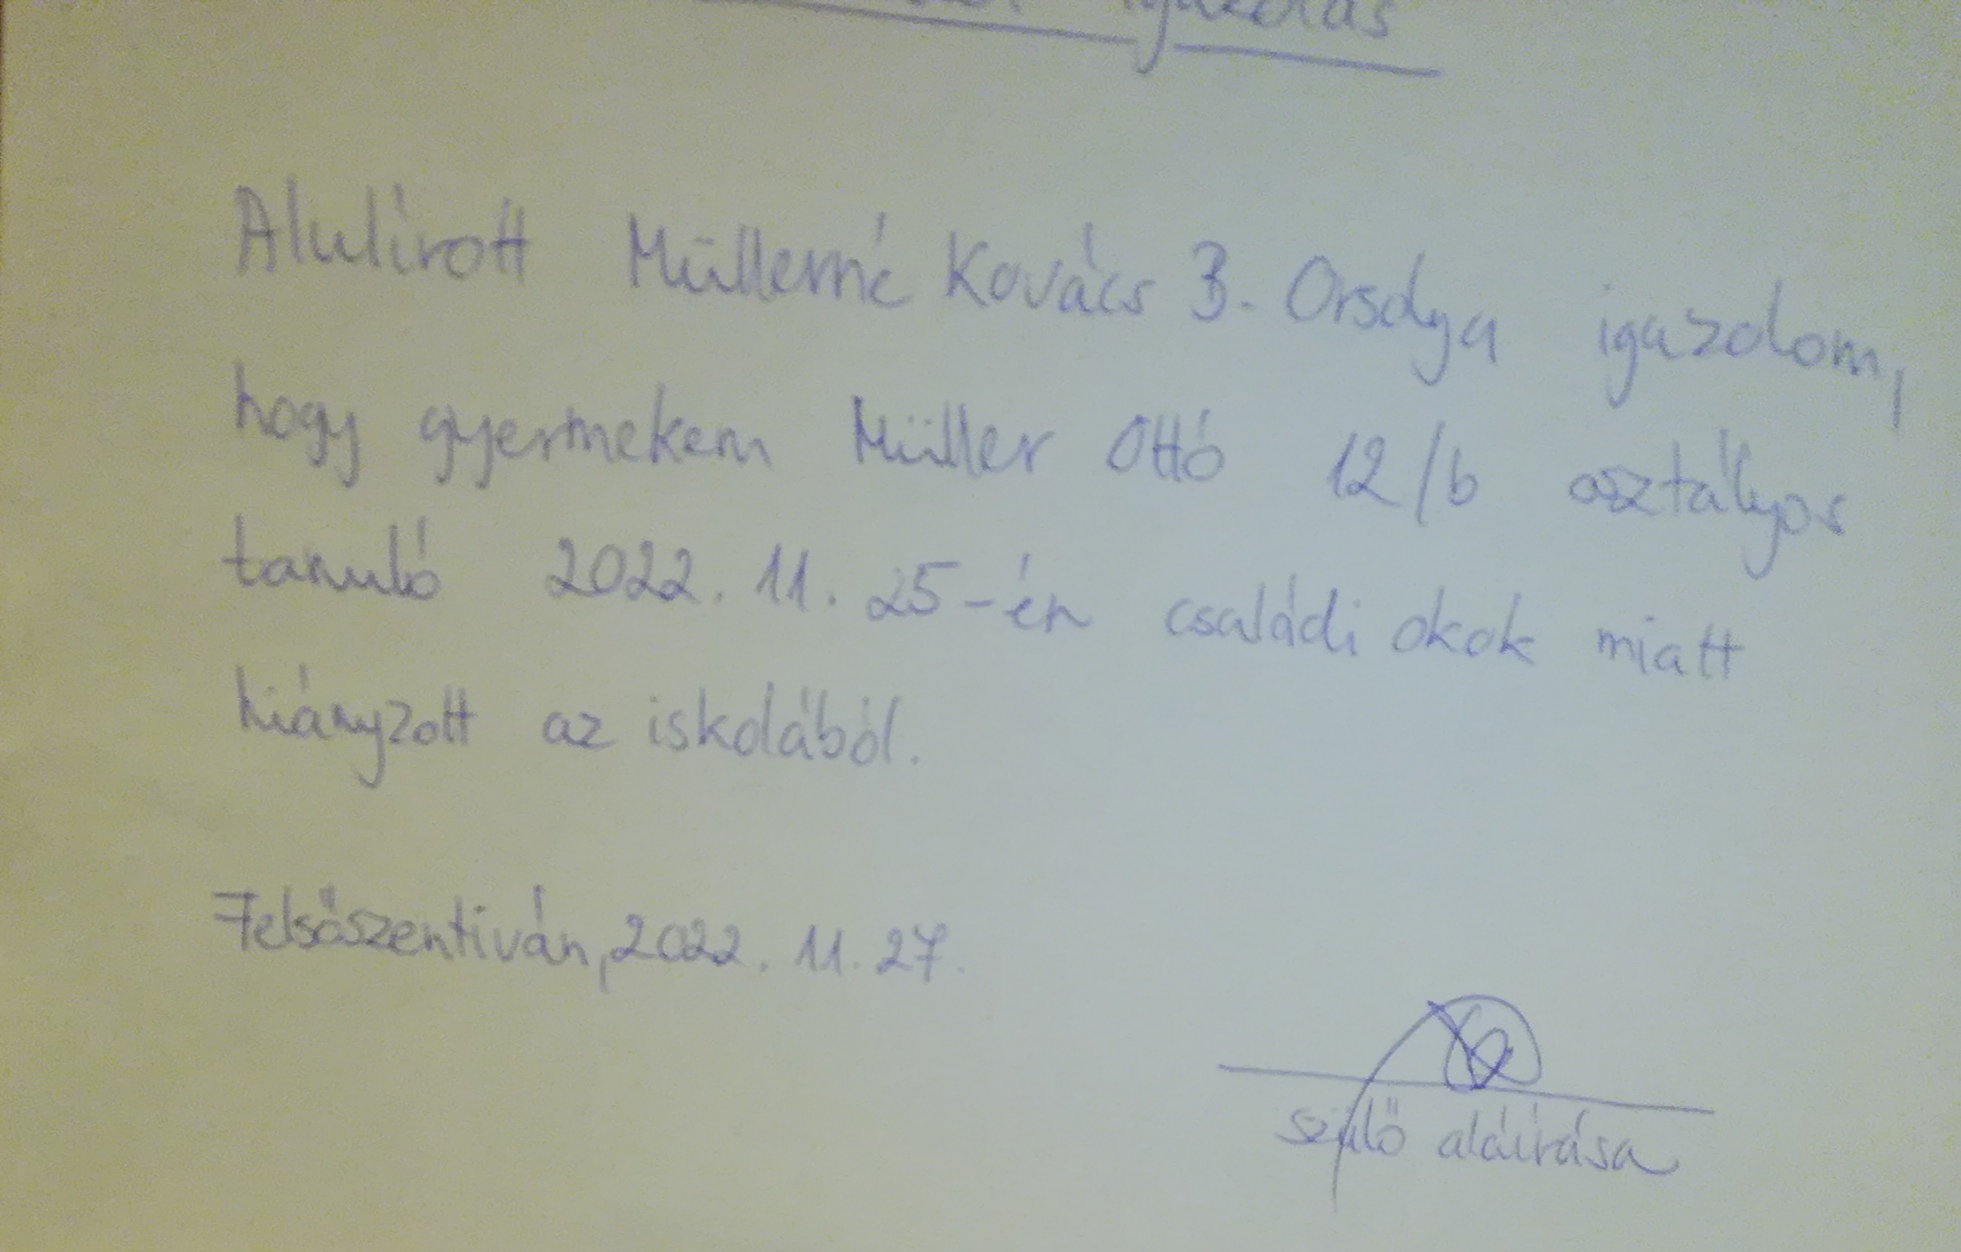 igazolás
Alulírott Müllerné Kovács B. Orsolya igazolom,
hogy gyermekem Müller Ottó 12/b osztályos
tanuló 2022. 11. 25-én családi okok miatt
hiányzott az iskolából.
Felsőszentiván, 2022. 11. 27.
szülő aláírása